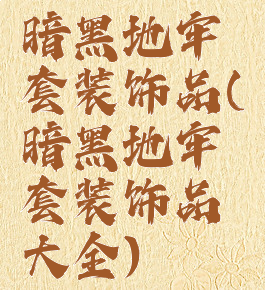 暗黑地牢
套装饰品(
暗黑地牢
套装饰品
大全)